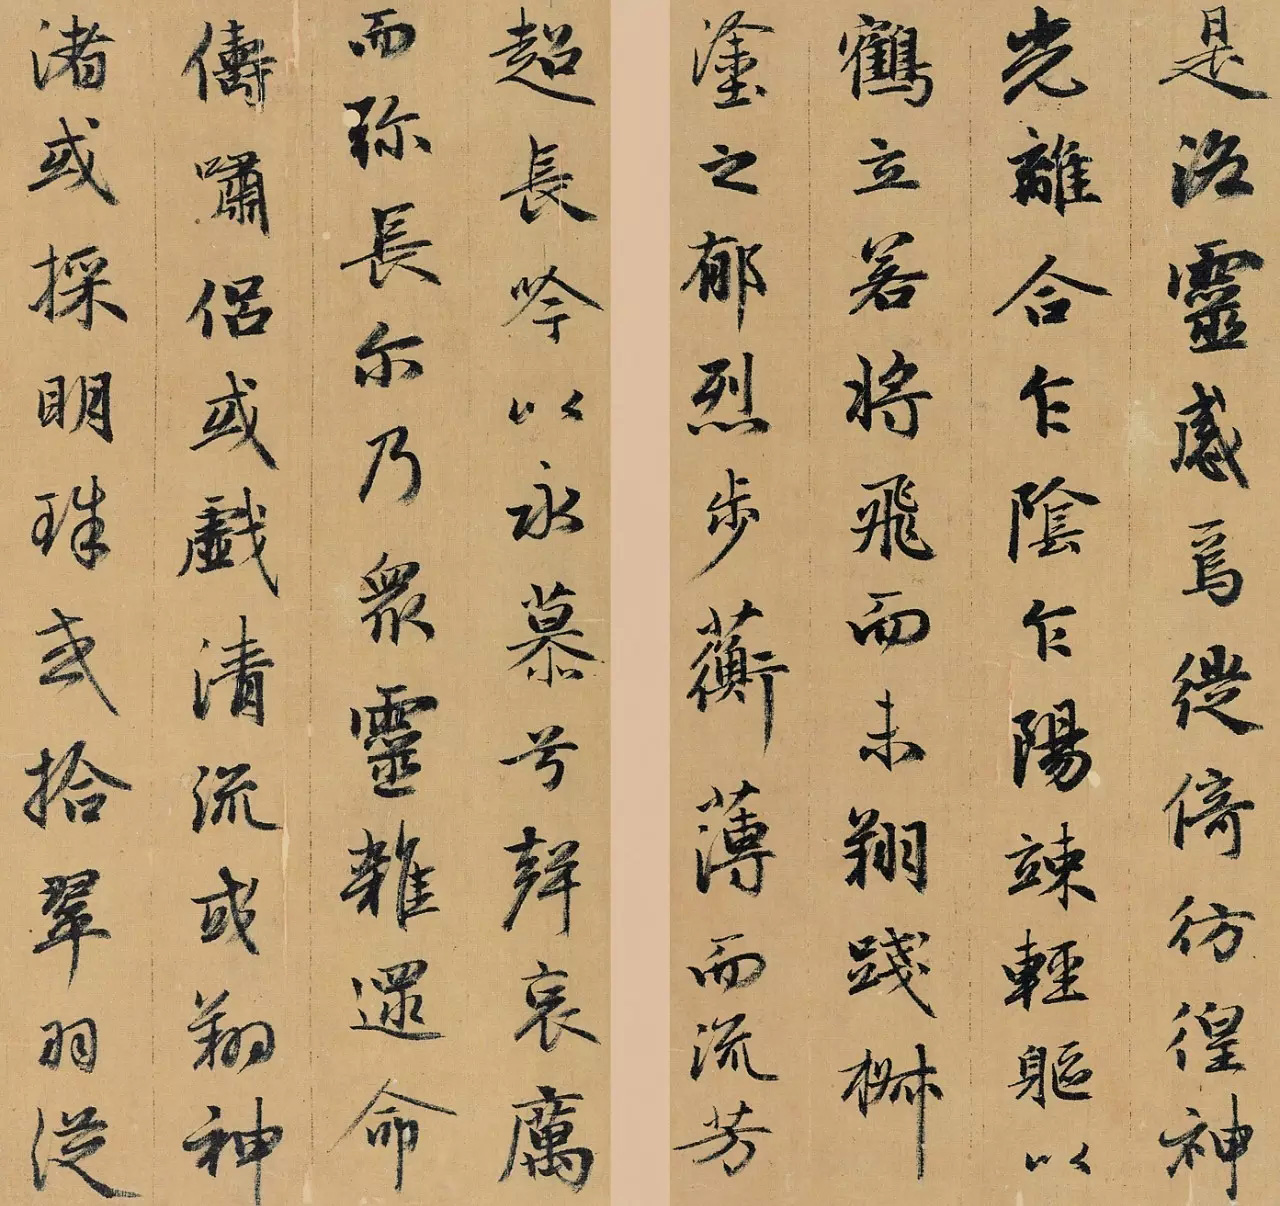 是洛靈感焉徙倚彷徨神
光離合乍陰乍陽竦輕軀以
鶴立若將飛而未翔踐椒
塗之郁烈步蘅薄而流芳
超長吟以永慕兮聲哀厲
而弥長尔乃衆靈雜遝命
儔嘯侶或戲清流或翔神
渚或採明珠或拾翠羽從